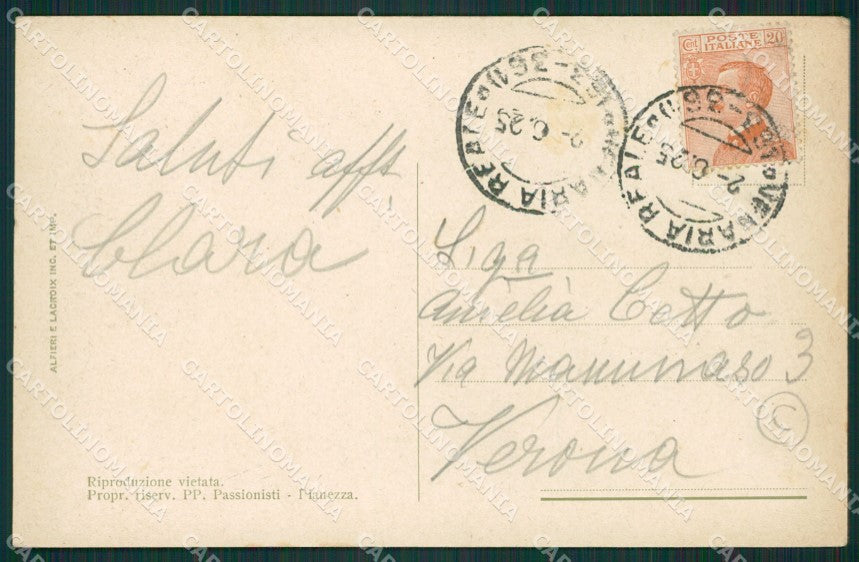 Saluti afft.
Clara
ALFIERI E LACROIX INC. ET IMP.
Riproduzione vietata.
Propr. riserv. PP. Passionisti - Pianezza.
POSTE ITALIANE
Cent 20
VENARIA REALE (36-3)
2-6.25
VENARIA REALE (36-3)
2-6.25
Sig.a
Amelia Cetto
Via 3
Verona
C
CARTOLINOMANIA